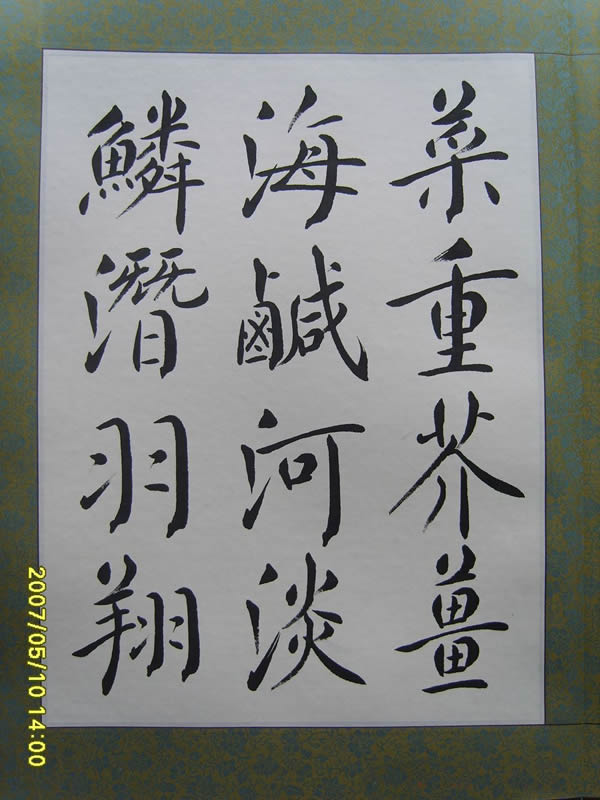 菜重芥薑
海鹹河淡
鱗潛羽翔
2007/05/10 14:00